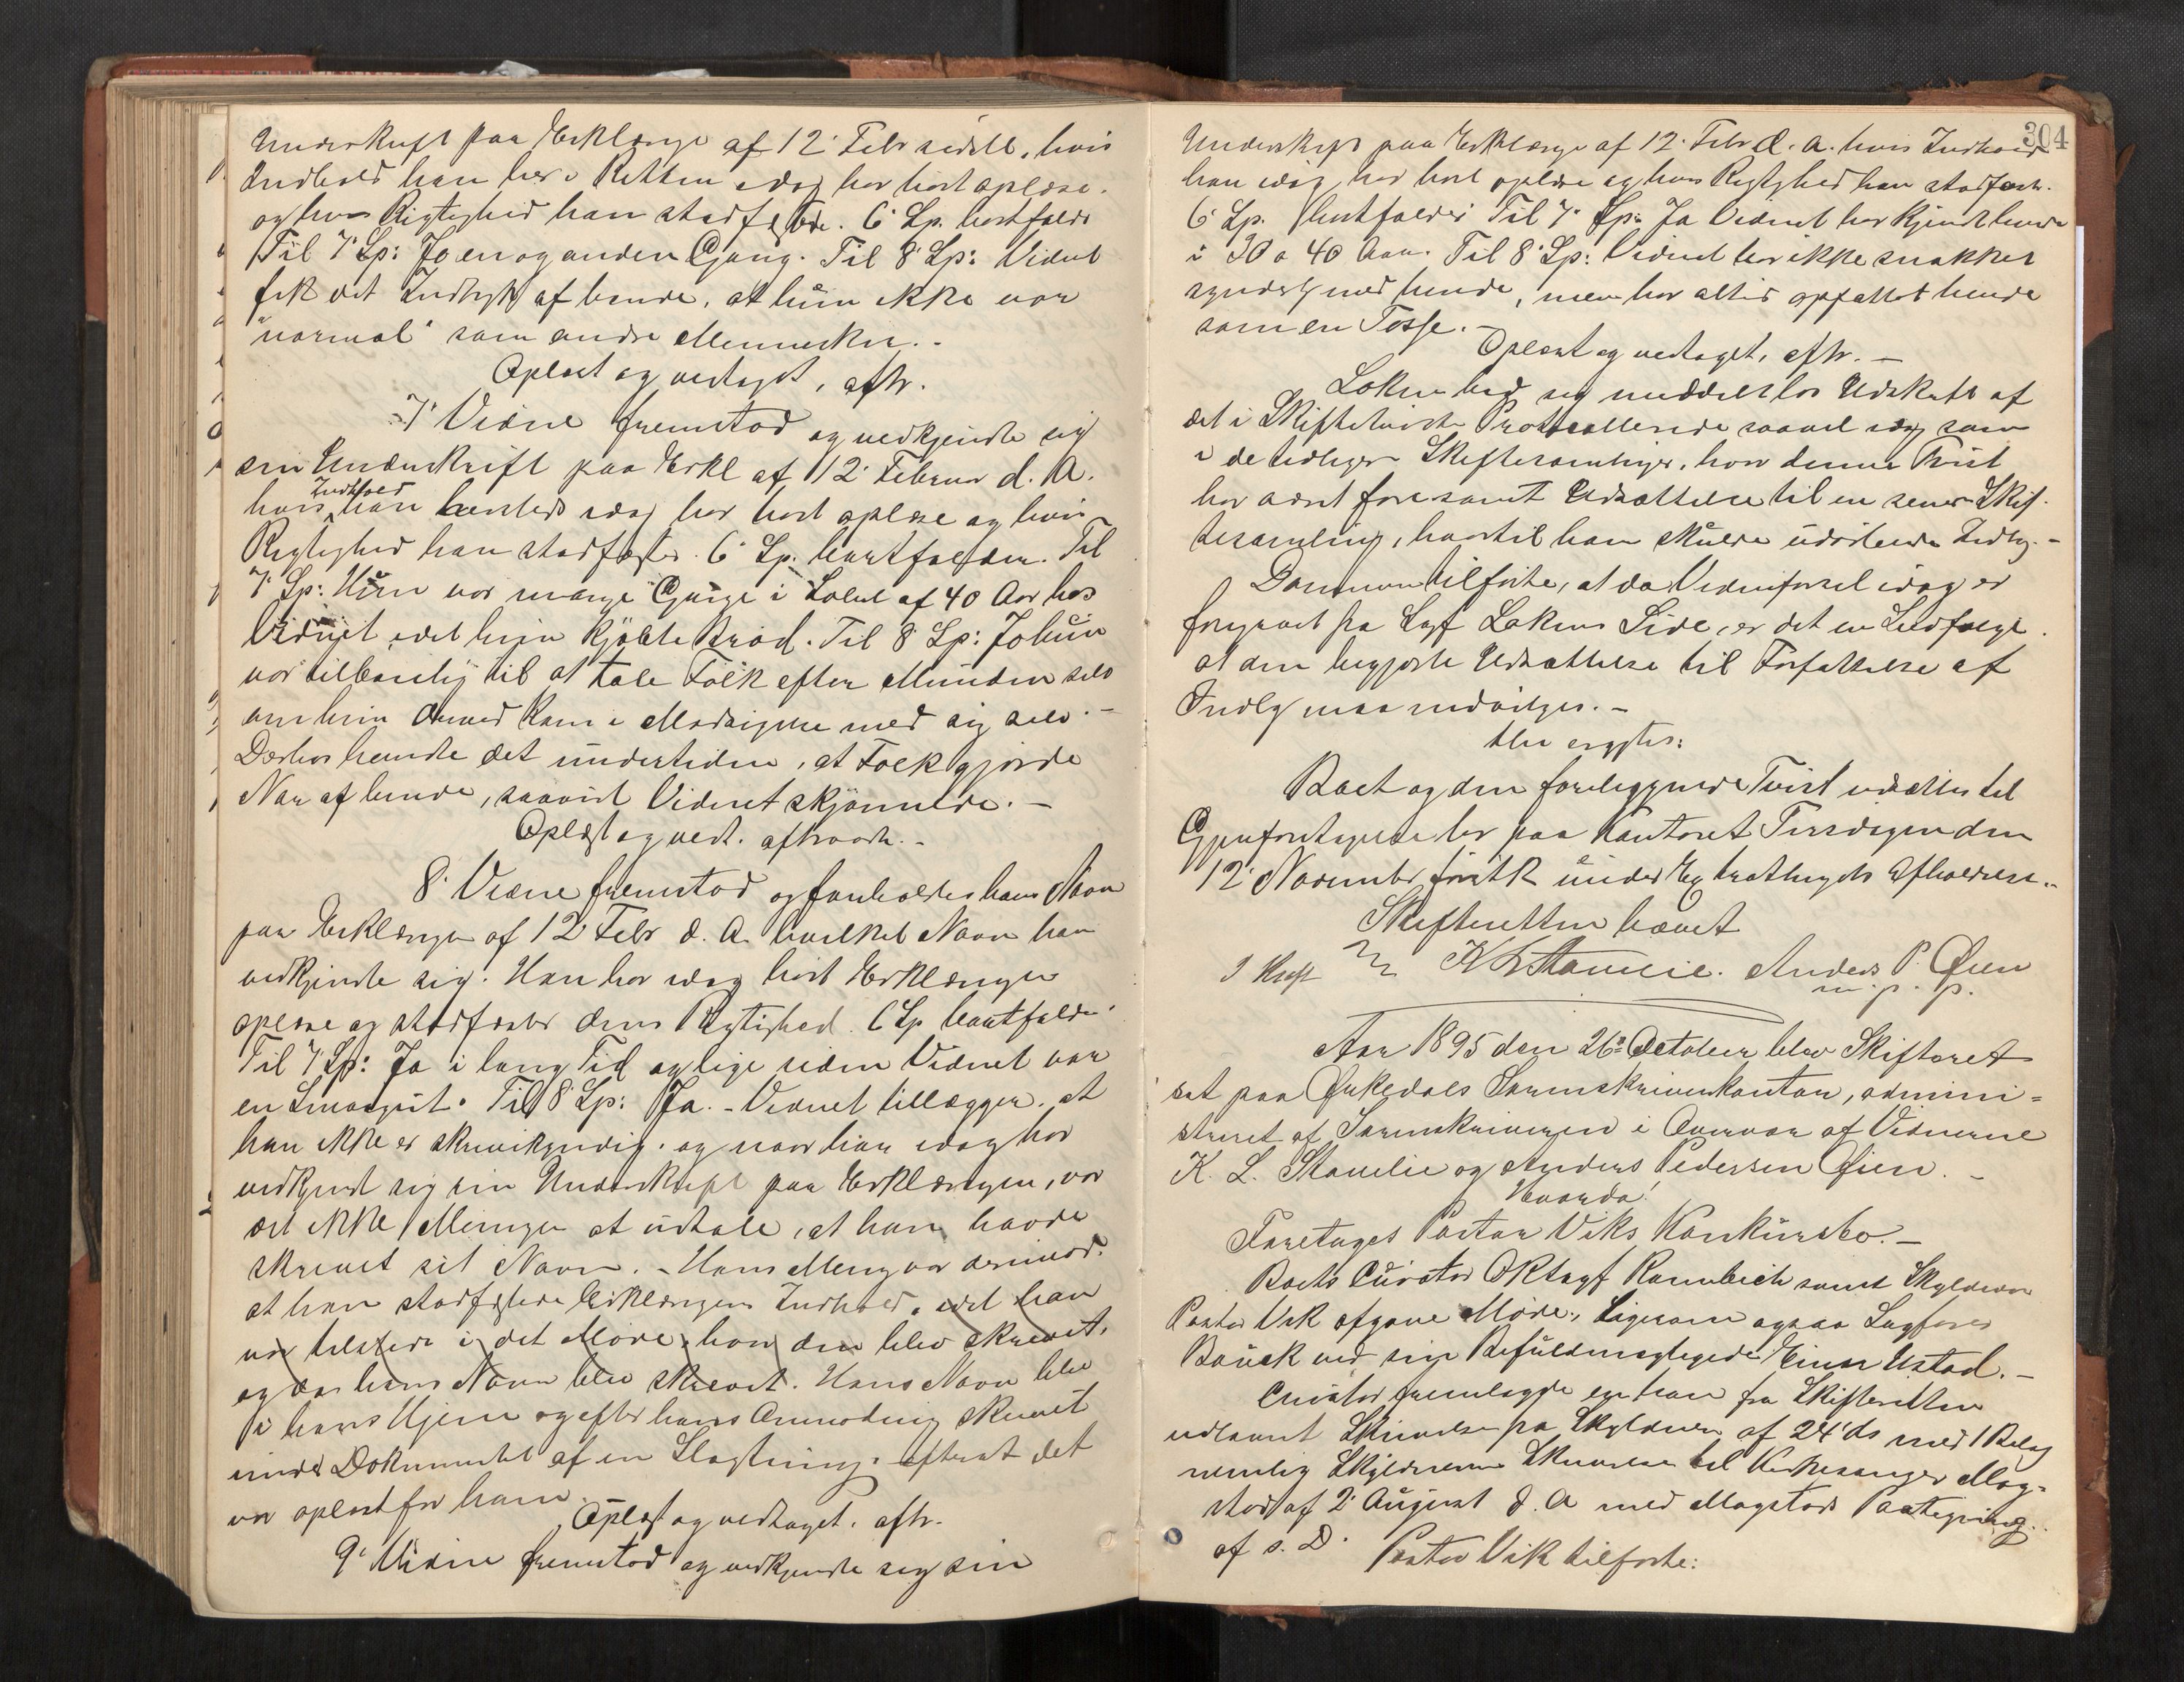 Underskrift paa Erklæringe af 12' Febr sidstl, hvis
Indhold han her i Retten idag har hørt oplæse.
og hvis Rigtighed han stadfæstede. 6' Sp. bortfaldt
Til 7' Sp: Jo en og anden Gang. Til 8' Sp: Vidnet
fik det Indtryk af hende, at hun ikke var
"normal" som andre Mennesker. -
Oplæst og vedtaget, aftr.
7' Vidne fremstod og vedkjendte sig
sin Underskrift paa Erkl af 12' Februar d. A.
hvis Indhold han hersteds idag har hørt oplæse og hvis
Rigtighed han stadfæster. 6' Sp. bortfalder. Til
7' Sp: Hun var mange Gange i Løbet af 40 Aar hos
Vidnet, idet hun kjøbte Brød. Til 8' Sp: Jo hun
var tilbøielig til at tale Folk efter Munden selv
om hun derved kom i Modsigelse med sig selv. -
Derhos hendte det undertiden, at Folk gjorde
Nar af hende, saavidt Vidnet skjønnede. -
Oplæst og vedt. aftraadte. -
8' Vidne fremstod og foreholdtes hans Navn
paa Erklæringen af 12' Febr d. A. hvilket Navn han
vedkjendte sig. Han har idag hørt Erklæringen
oplæse og stadfæster dens Rigtighed. 6' Sp bortfalder.
Til 7' Sp: Ja i lang Tid og lige siden Vidnet var
en Smaagut. Til 8' Sp: Ja. - Vidnet tillægger, at
han ikke er skrivekyndig, og naar han idag har
vedkjendt sig sin Underskrift paa Erklæringen, var
det ikke Meningen at udtale, at han havde
skrevet sit Navn. - Hans Mening var derimod,
at han stadfæstede Erklæringens Indhold, idet han
var tilstede i det Møde, hvor den blev skrevet,
og da hans Navn blev skrevet. Hans Navn blev
i hans Hjem og efter hans Anmodning skrevet
under Dokumentet af en Slægtning, efterat det
var oplæst for ham.
Oplæst og vedtaget, aftr.
9' Vidne fremstod og vedkjendte sig sin
304
Underskrift paa Erklæringe af 12' Febr d. A. hvis Indhold
han idag har hørt oplæse og hvis Rigtighed han stadfæst.
6' Sp. bortfalder Til 7' Sp: Ja Vidnet har kjendt hende
i 30 a 40 Aar. Til 8' Sp: Vidnet har ikke snakket
synderlig med hende, men har altid opfattet hende
som en Tosse. -
Oplæst og vedtaget, aftr. -
Løken bad sig meddelt los Udskrift af
det i Skiftetvisten Protocollerede saavel idag som
i de tidligere Skiftesamlinger, hvor denne Tvist
har været fore samt Udsættelse til en senere Skif-
tesamling, hvortil han skulde udarbeide Indlæg. -
Dommeren tilførte, at da Vidneførsel idag er
foregaaet fra Sagf Løkens Side, er det en Selvfølge
at den begjærte Udsættelse til Forfattelse af
Indlæg maa indvilges. -
blev eragtet:
Boet og den foreliggende Tvist udsættes til
Gjenforetagelse her paa Kontoret Tirsdagen den
12' November førstk under Extrathingets Afholdelse. -
Skifteretten hævet
K L Stamlie. Anders P. Øien
m. p. p.
Aar 1895 den 26' October blev Skifteret
sat paa Ørkedals Sorenskriverkontor, admini-
streret af Sorenskriveren i Overvær af Vidnerne
K. L. Stamlie og Anders Pedersen Øien. -
Hvorda!
Foretages Pastor Viks Konkursbo. -
Boets Curator ORsagf Rambech samt Skyldneren
Pastor Vik afgave Møde, ligesom ogsaa Sagfører
Bauck ved sin Befuldmægtigede Einar Ustad. -
Curator fremlagde en ham fra Skifteretten
udlaant Skrivelse fra Skyldneren af 24' ds med 1 Bilag
nemlig Skyldnerens Skrivelse til Kirkesanger Mog-
stad af 2' August d. A med Mogstads Paategning
af s. D.
Pastor Vik tilførte: